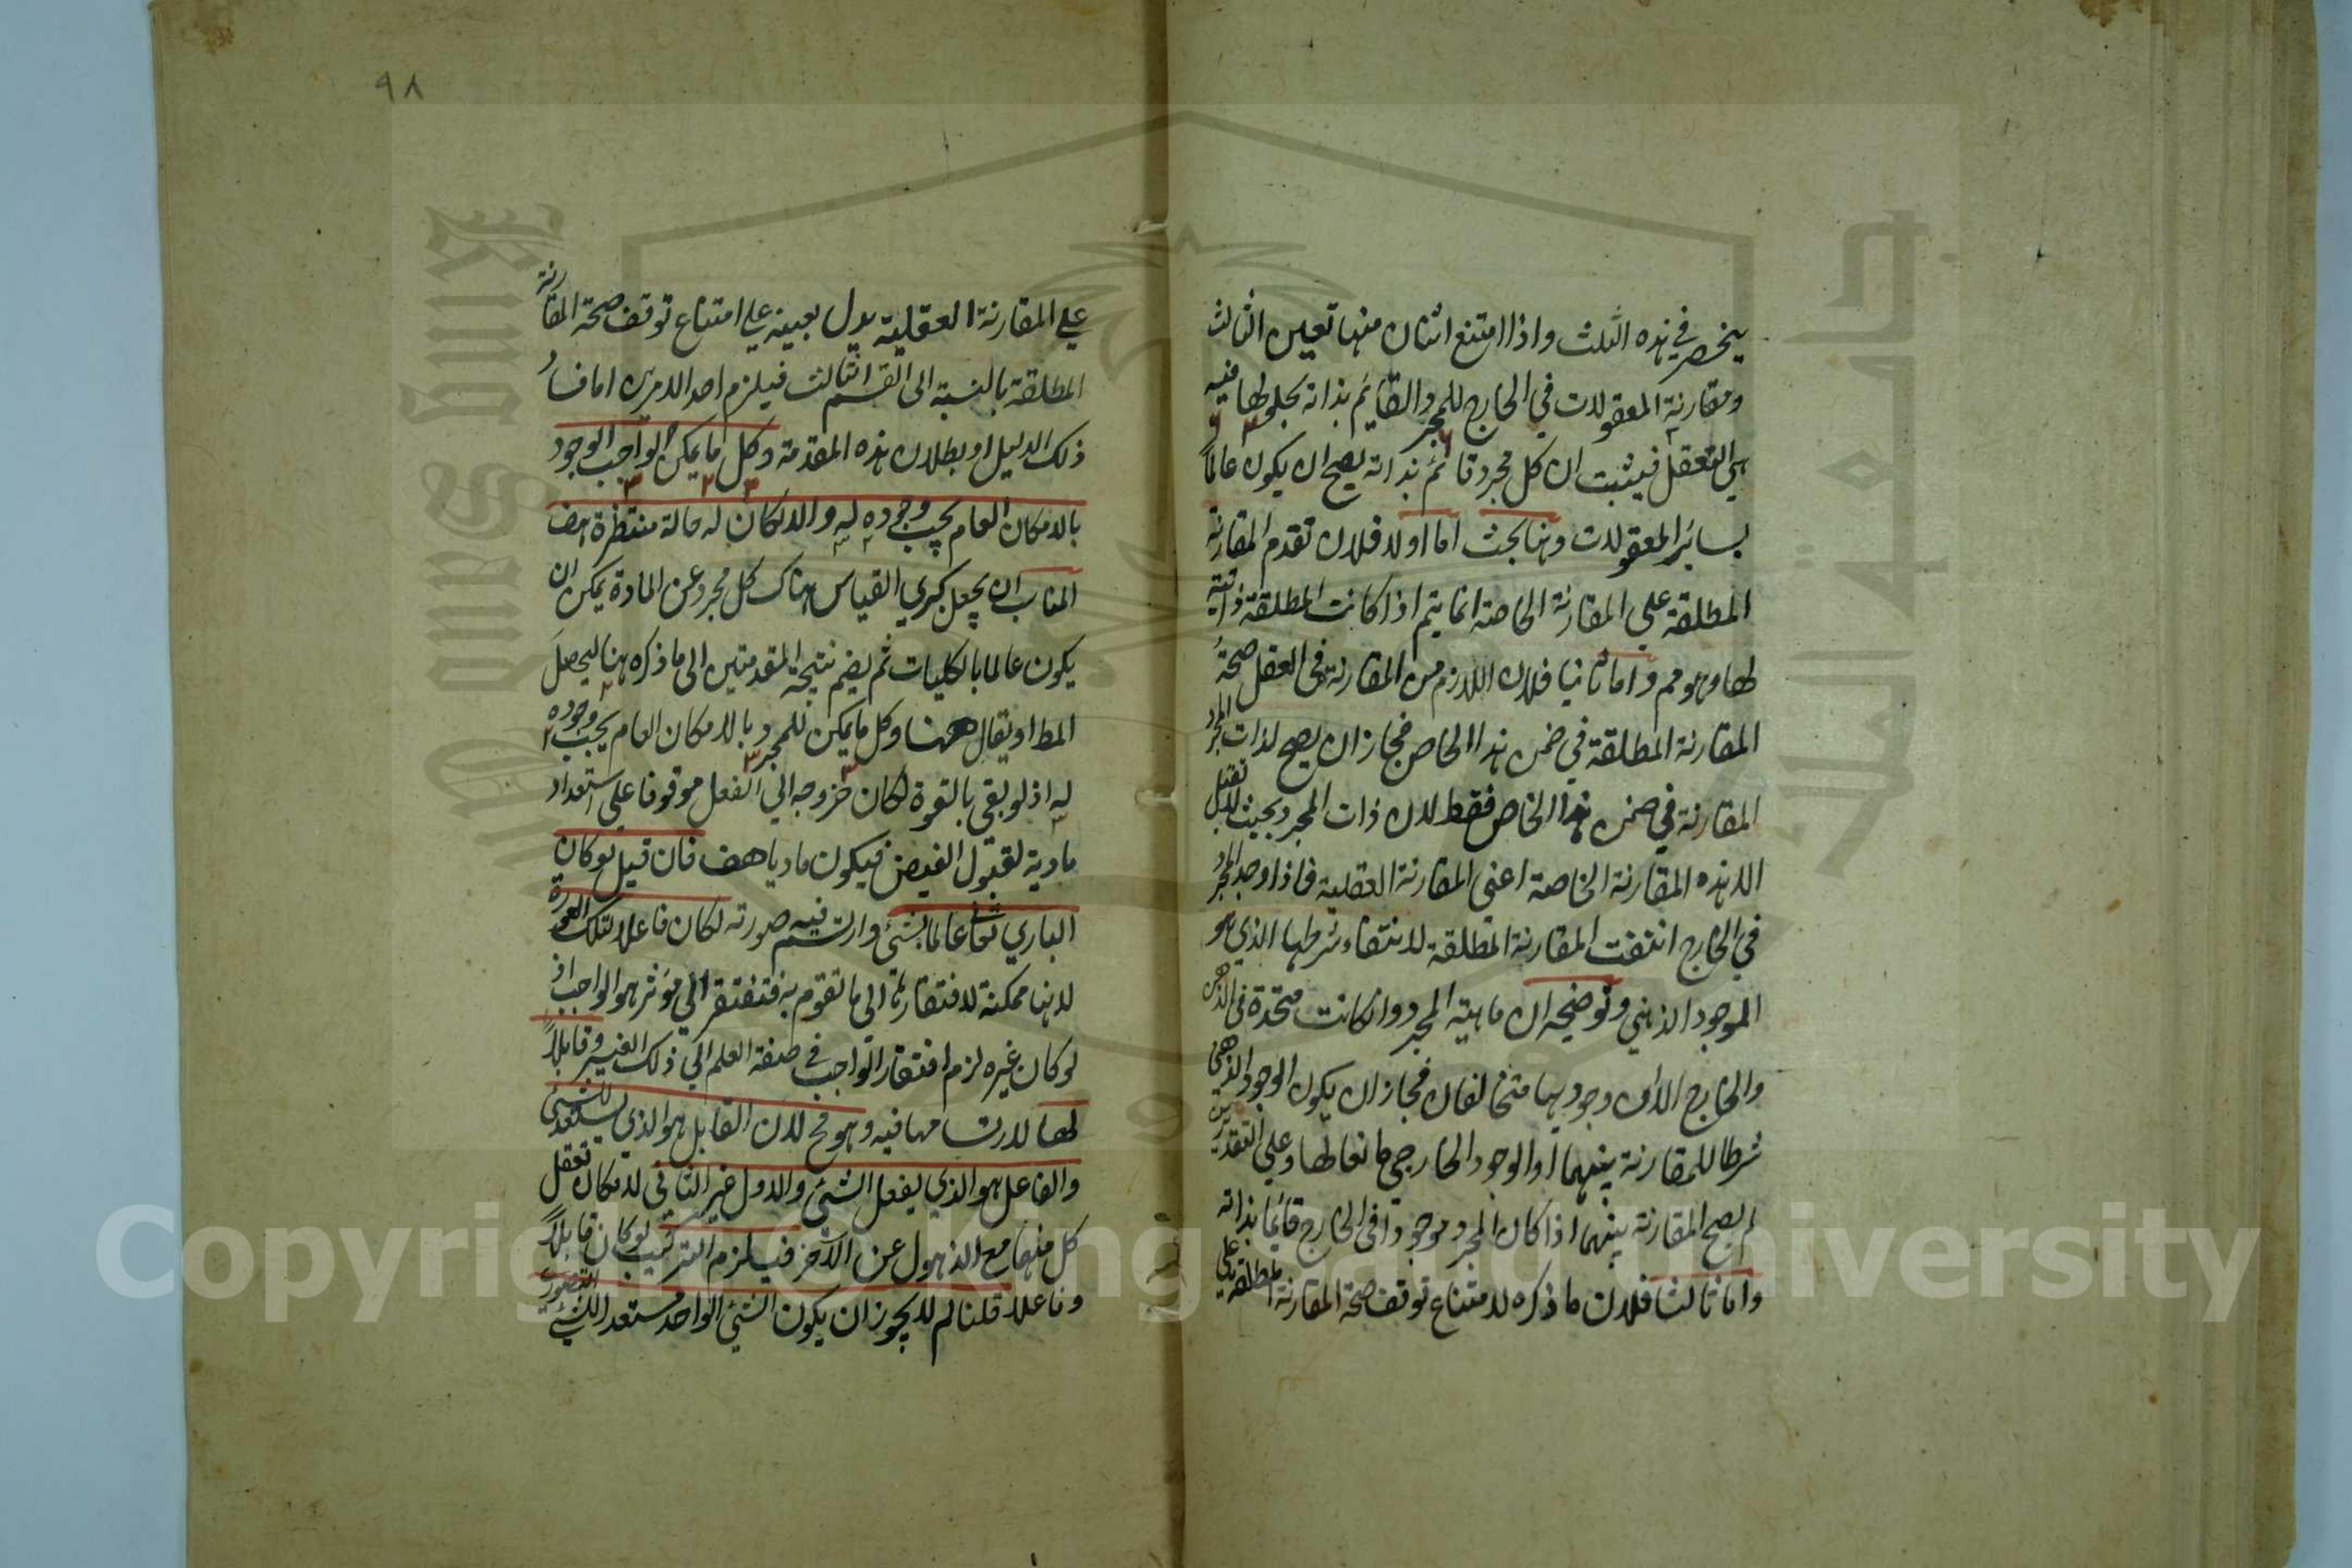 ينحصر في هذه الثلث واذا امتنع اثنان منها تعين الثالث
ومقارنة المعقولات في الخارج للمجرد القائم بذاته بحلولها فيه
هي التعقل فيثبت ان كل مجرد قائم بذاته يصح ان يكون عالما
بسائر المعقولات وهنا بحث اما اولا فلان تقدم المقارنة
المطلقة على المقارنة الخاصة انما يتم اذا كانت المطلقة ذاتية
لها وهو مم واما ثانيا فلان اللازم من المقارنة في العقل صحة
المقارنة المطلقة في ضمن هذا الخاص فجاز ان يصح لذات المجرد
المقارنة في ضمن هذا الخاص فقط لان ذات المجرد بحيث لا تقبل
الا هذه المقارنة الخاصة اعني المقارنة العقلية فاذا وجد المجرد
في الخارج انتفت المقارنة المطلقة لانتفاء شرطها الذي هو
الموجود الذهني وتوضيحه ان ماهية المجرد وان كانت متحدة في الذهن
والخارج الا ان وجوديها متخالفان فجاز ان يكون الوجود الذهني
شرطا للمقارنة بينهما او الوجود الخارجي مانعا لها وعلى التقديرين
لم يصح المقارنة بينهما اذا كان المجرد موجودا في الخارج قائما بذاته
واما ثالثا فلان ما ذكره لامتناع توقف صحة المقارنة المطلقة على
٩٨
على المقارنة العقلية يدل بعينه على امتناع توقف صحة المقارنة
المطلقة بالنسبة الى القسم الثالث فيلزم احد الامرين اما فساد
ذلك الدليل او بطلان هذه المقدمة وكل ما يمكن لواجب الوجود
بالامكان العام يجب وجوده له والا لكان له حالة منتظرة هف
المناسب ان يجعل كبري القياس هناك كل مجرد عن المادة يمكن ان
يكون عالما بالكليات ثم يضم نتيجة المقدمتين الى ما ذكره هنا ليحصل
المط او يقال ههنا وكل ما يمكن للمجرد بالامكان العام يجب وجوده
له اذ لو بقي بالقوة لكان خروجه الي الفعل موقوفا على استعداد
مادية لقبول الفيض فيكون ماديا هف فان قيل لو كان
الباري تعا عالما بشئ وارتسم فيه صورته لكان فاعلا لتلك الصورة
لانها ممكنة لافتقارها الى ما تقوم به فتفتقر الي مؤثر هو الواجب اذ
لو كان غيره لزم افتقار الواجب في صفة العلم الي ذلك الغير وقابلا
لها لارتسامها فيه وهو مح لان القابل هو الذي يستعد للشئ
والفاعل هو الذي يفعل الشئ والاول غير الثاني لامكان تعقل
كل منهما مع الذهول عن الآخر فيلزم التركيب لو كان قابلا
وفاعلا قلنا لم لا يجوز ان يكون الشئ الواحد مستعدا للشئ التصوري
Copyright © King Saud University